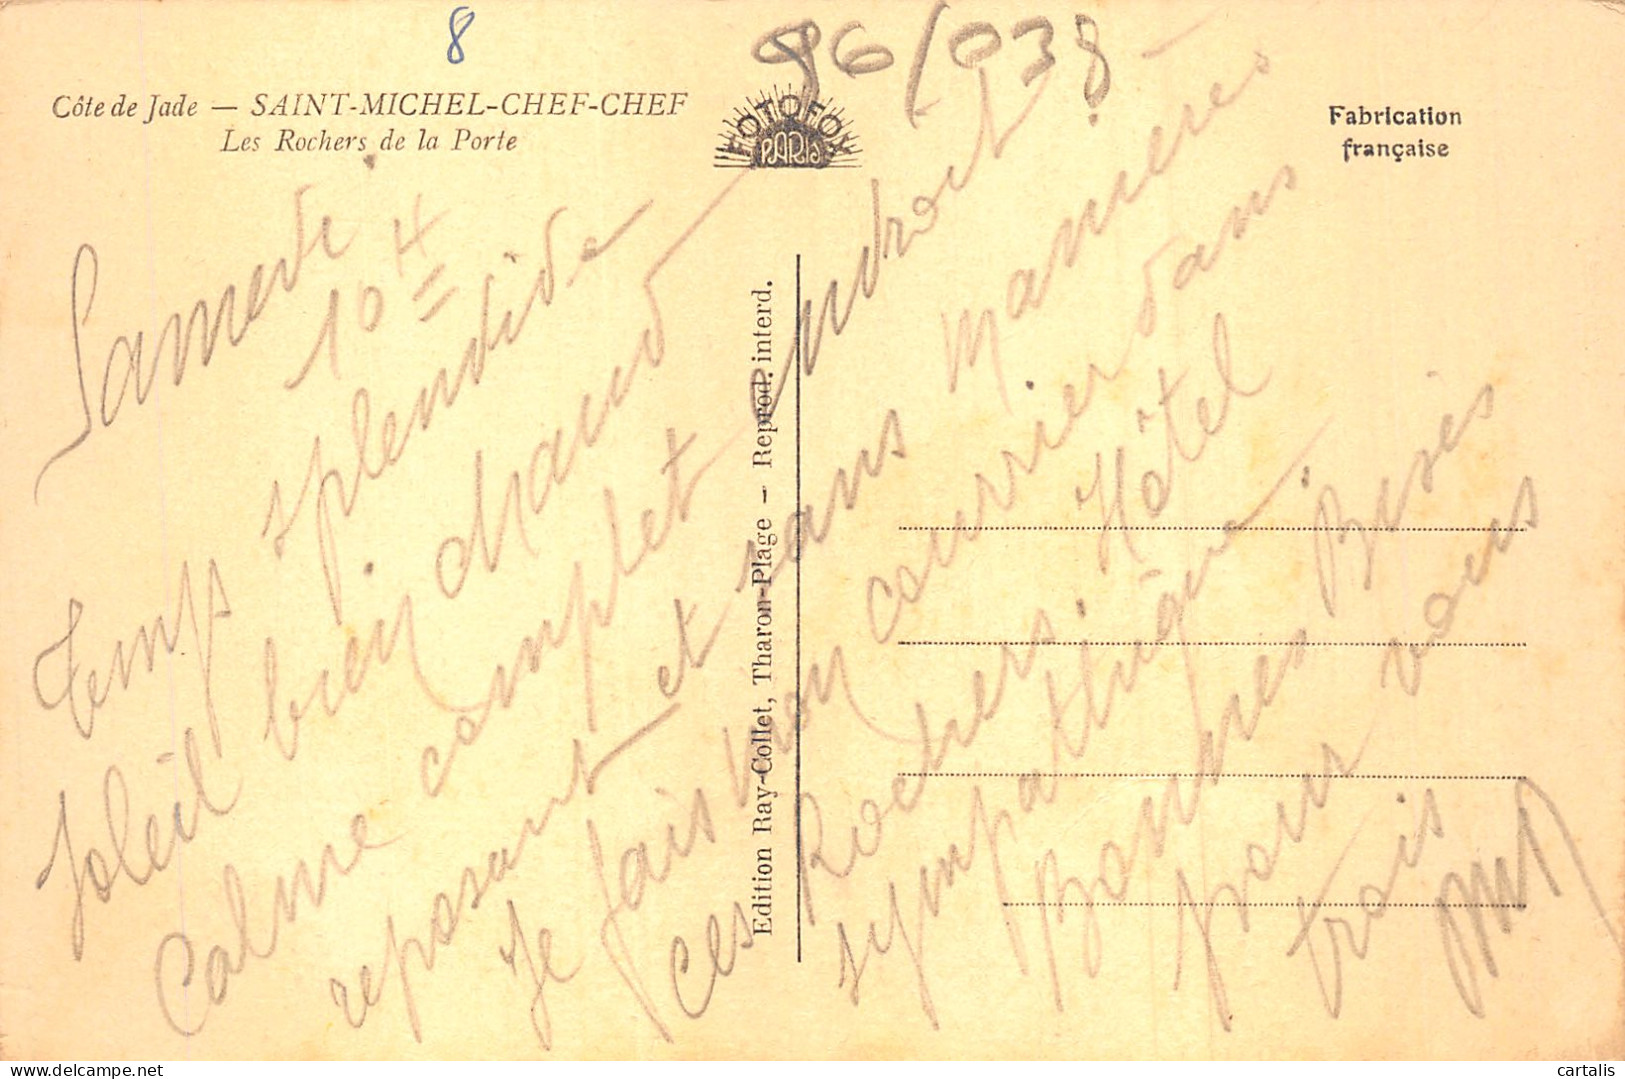 8
96/038
Côte de Jade — SAINT-MICHEL-CHEF-CHEF
Les Rochers de la Porte
FOTOFOX
PARIS
Fabrication
française
Edition Ray-Collet, Tharon-Plage – Reprod. interd.
Samedi
10 4
Temps splendide
Soleil bien chaud
Calme complet endroit
reposant et sans manières
Je fais mon courrier dans
ces Rochers Hôtel
sympathique
Bonnes Bises
pour vous
trois
cartalis